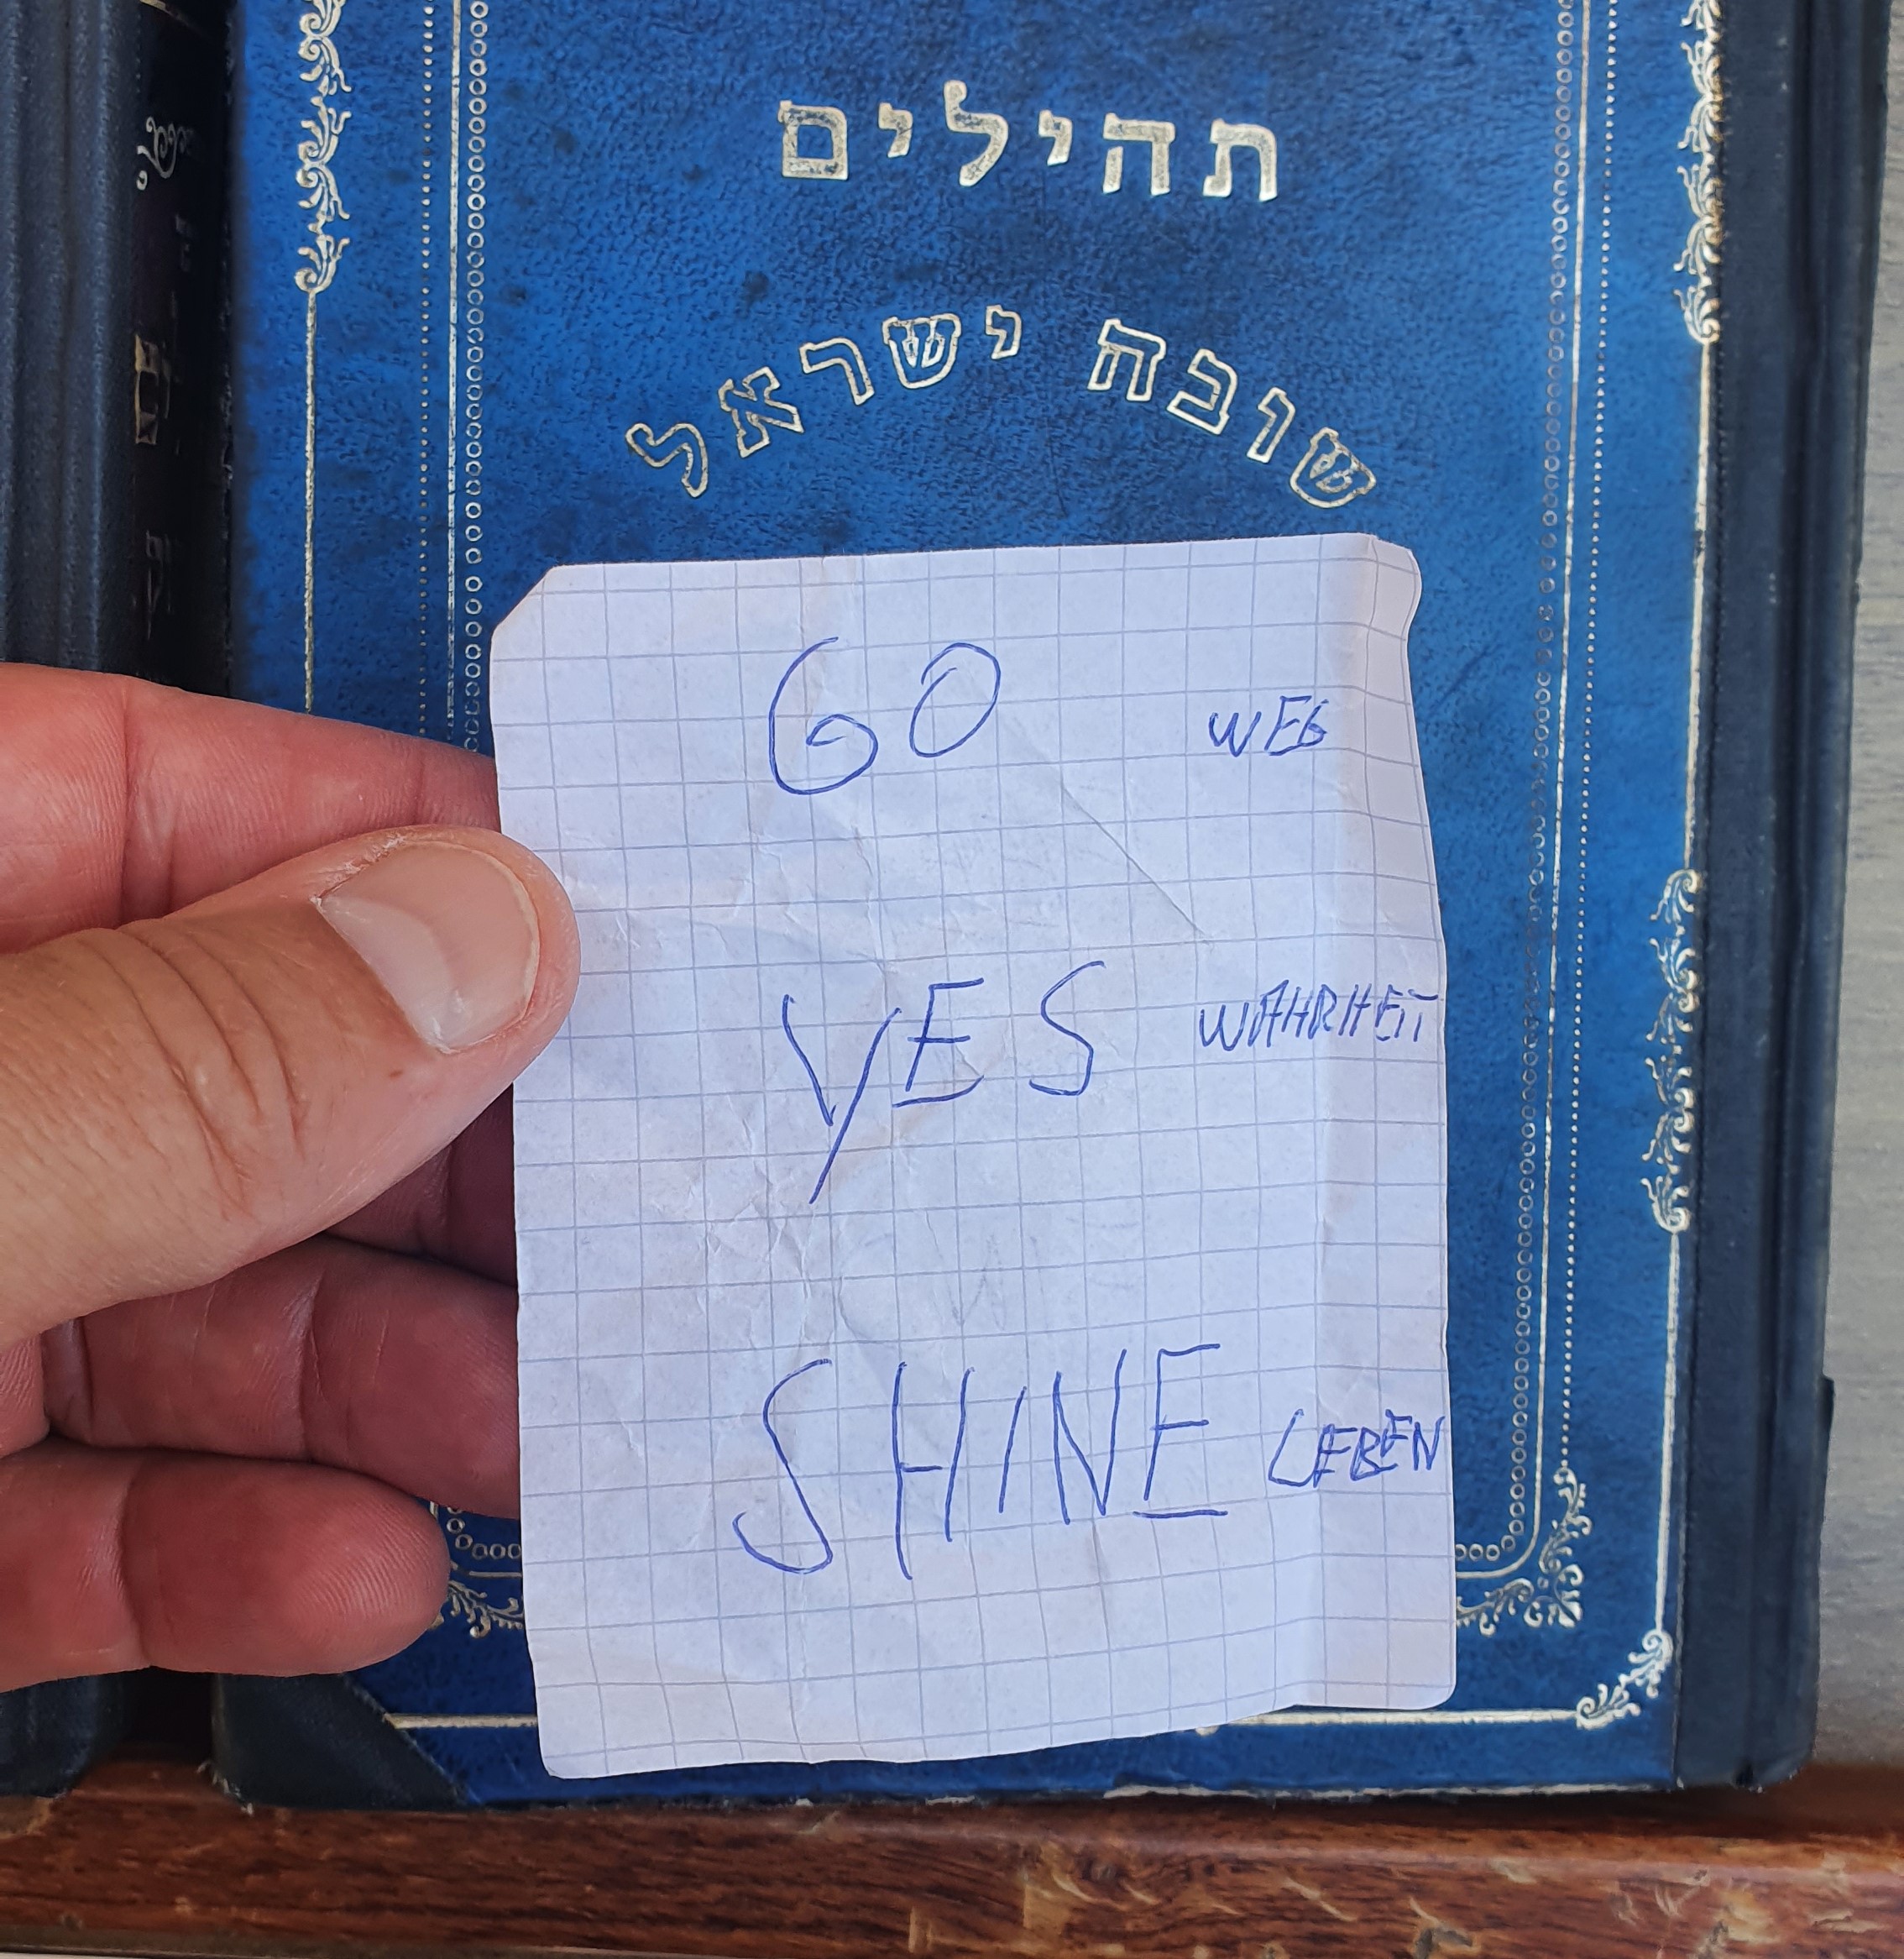 תהילים
שובה ישראל
GO WEG
YES WAHRHEIT
SHINE LEBEN